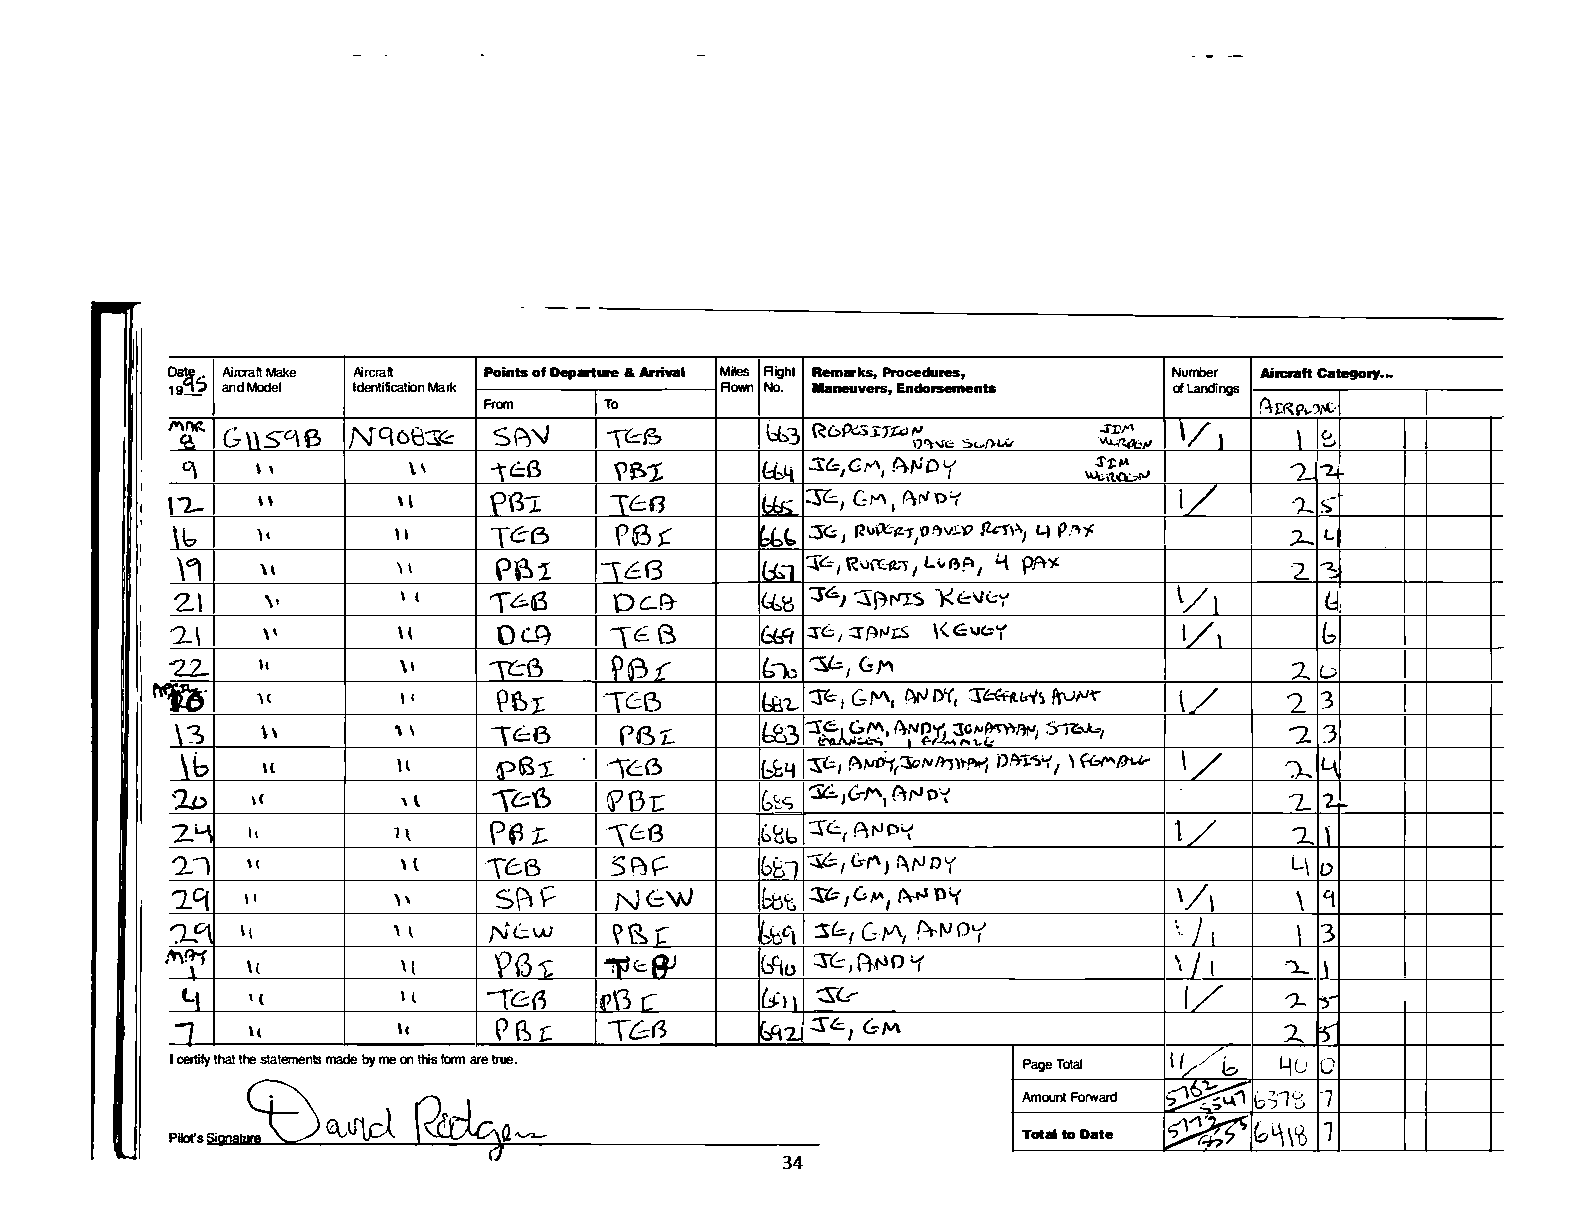 Date 1995 Aircraft Make and Model Aircraft Identification Mark Points of Departure & Arrival Miles Flown Flight No. Remarks, Procedures, Maneuvers, Endorsements Number of Landings Aircraft Category...
From To AIRPLANE
MAR 8 G1159B N908JE SAV TEB 663 REPOSITION DAVE JIM 1/1 1 8
9 " " TEB PBI 664 JE, GM, ANDY JIM 2 2
12 " " PBI TEB 665 JE, GM, ANDY 1/ 2 5
16 " " TEB PBI 666 JE, RUPERT, DAVID ROTH, 4 PAX 2 4
19 " " PBI TEB 667 JE, RUPERT, LUBA, 4 PAX 2 3
21 " " TEB DCA 668 JE, JANIS 1/1 6
21 " " DCA TEB 669 JE, JANIS 1/1 6
22 " " TEB PBI 670 JE, GM 2 0
10 " " PBI TEB 682 JE, GM, ANDY, JEFFREYS AUNT 1/ 2 3
13 " " TEB PBI 683 JE, GM, ANDY, JONATHAN, 1 FEMALE 2 3
16 " " PBI TEB 684 JE, ANDY, JONATHAN, DAISY, 1 FEMALE 1/ 2 4
20 " " TEB PBI 685 JE, GM, ANDY 2 2
24 " " PBI TEB 686 JE, ANDY 1/ 2 1
27 " " TEB SAF 687 JE, GM, ANDY 4 0
29 " " SAF NEW 688 JE, GM, ANDY 1/1 1 9
29 " " NEW PBI 689 JE, GM, ANDY 1/1 1 3
MAY 1 " " PBI TEB 690 JE, ANDY 1/1 2 1
4 " " TEB PBI 691 JE 1/ 2 5
7 " " PBI TEB 692 JE, GM 2 5
I certify that the statements made by me on this form are true. Page Total 11/6 40 0
Amount Forward 5762 5547 6378 7
Pilot's Signature David Rodgers Total to Date 5773 6418 7
34